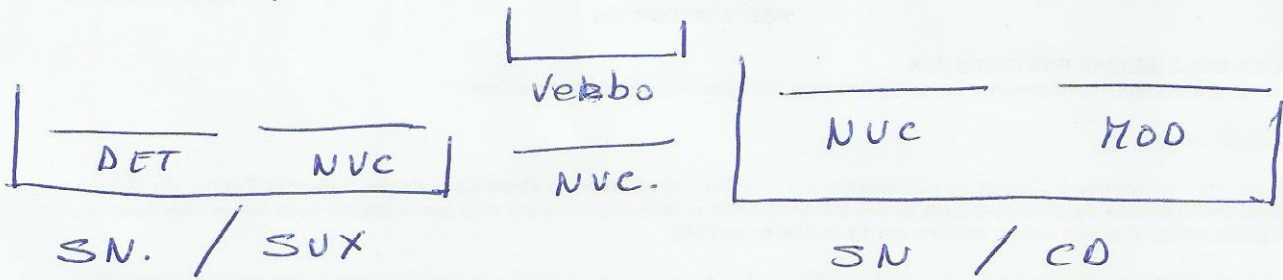 Verbo
DET NUC NUC. NUC MOD
SN. / SUX SN / CD